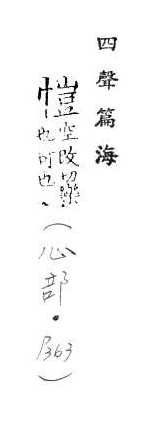 四聲篇海
愷空改切樂
也可也
(心部・P363)